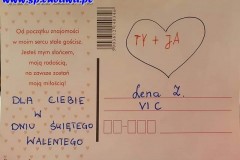 Od początku znajomości
w moim sercu stale gościsz.
Jesteś mym słońcem,
moją radością,
na zawsze zostań
moją miłością!
DLA CIEBIE
W
DNIU ŚWIĘTEGO
WALENTEGO
TY + JA
Lena Z.
VI C